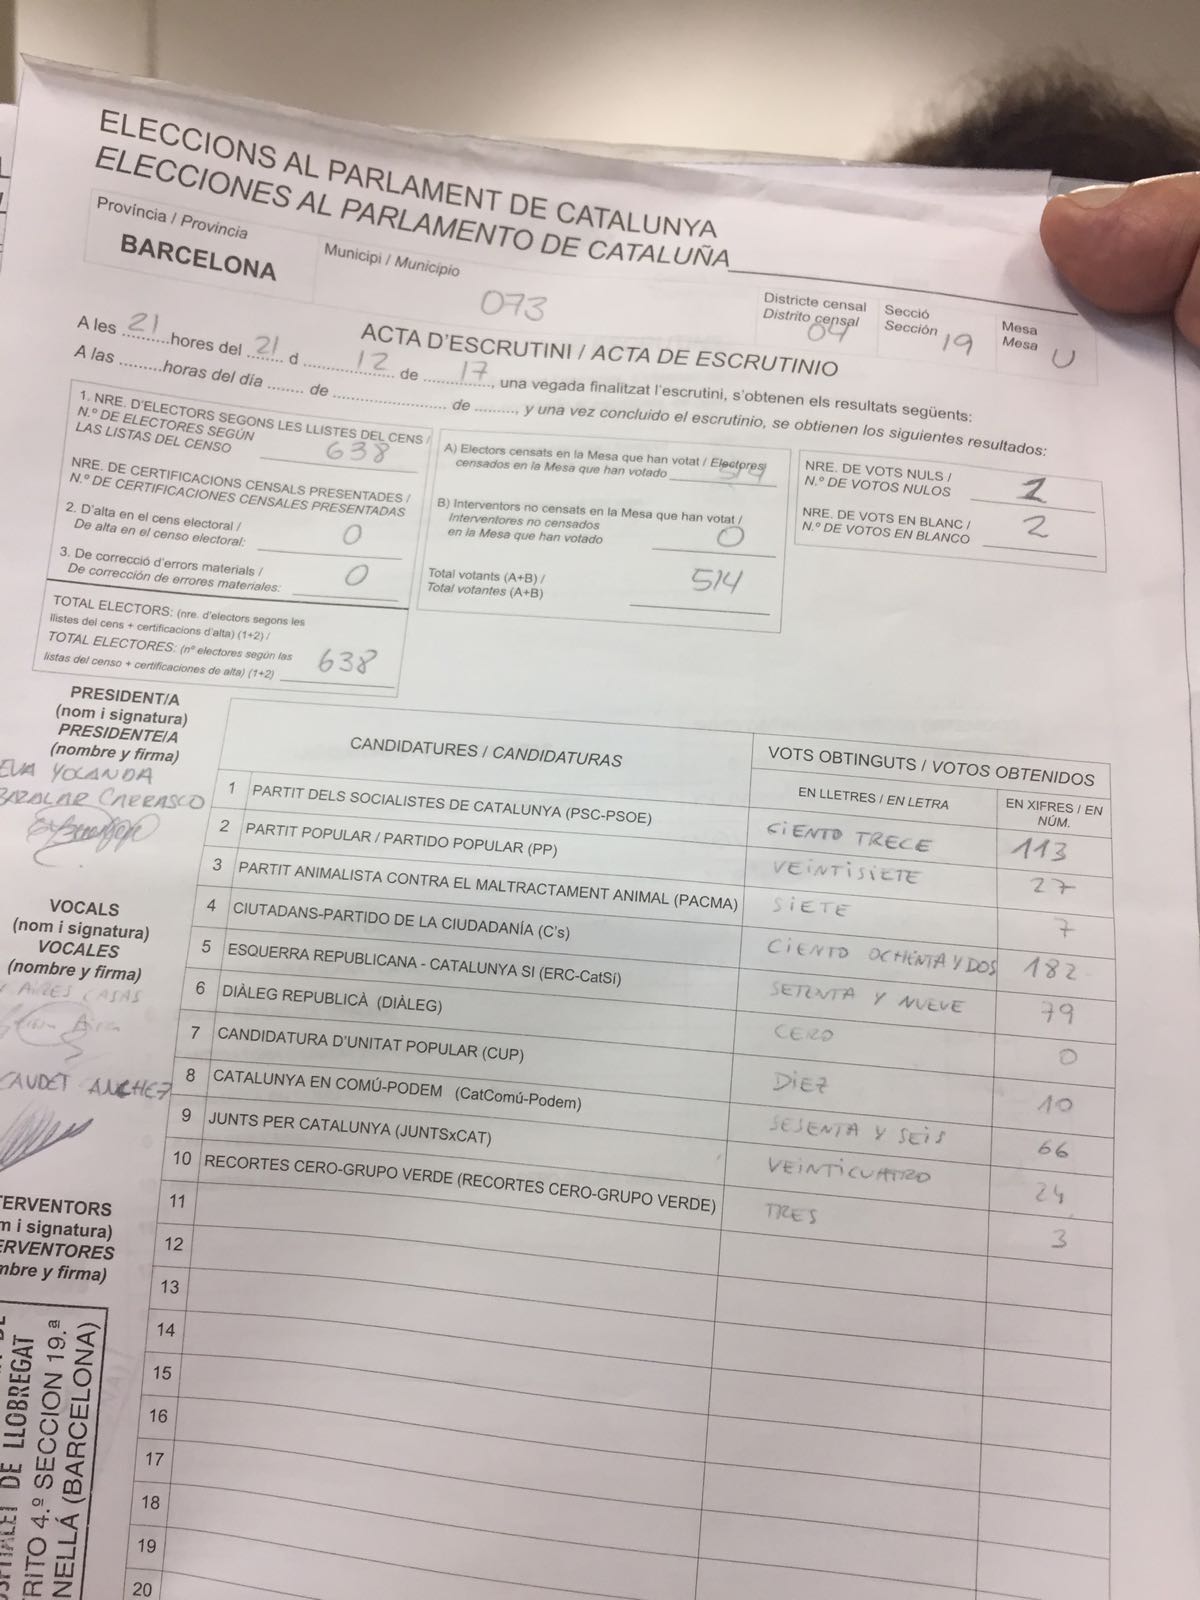 ELECCIONS AL PARLAMENT DE CATALUNYA
ELECCIONES AL PARLAMENTO DE CATALUÑA
Província / Provincia
BARCELONA
Municipi / Municipio
073
Districte censal
Distrito censal
04
Secció
Sección 19
Mesa
Mesa U
ACTA D'ESCRUTINI / ACTA DE ESCRUTINIO
A les 21 hores del 21 d 12 de 17, una vegada finalitzat l'escrutini, s'obtenen els resultats següents:
A las ......... horas del día ....... de ....................... de ........., y una vez concluido el escrutinio, se obtienen los siguientes resultados:
1. NRE. D'ELECTORS SEGONS LES LLISTES DEL CENS /
N.º DE ELECTORES SEGÚN
LAS LISTAS DEL CENSO 638
NRE. DE CERTIFICACIONS CENSALS PRESENTADES /
N.º DE CERTIFICACIONES CENSALES PRESENTADAS
2. D'alta en el cens electoral /
De alta en el censo electoral: 0
3. De correcció d'errors materials /
De corrección de errores materiales: 0
TOTAL ELECTORS: (nre. d'electors segons les
llistes del cens + certificacions d'alta) (1+2) /
TOTAL ELECTORES: (nº electores según las
listas del censo + certificaciones de alta) (1+2) 638
A) Electors censats en la Mesa que han votat / Electores
censados en la Mesa que han votado 514
B) Interventors no censats en la Mesa que han votat /
Interventores no censados
en la Mesa que han votado 0
Total votants (A+B) /
Total votantes (A+B) 514
NRE. DE VOTS NULS /
N.º DE VOTOS NULOS 1
NRE. DE VOTS EN BLANC /
N.º DE VOTOS EN BLANCO 2
PRESIDENT/A
(nom i signatura)
PRESIDENTE/A
(nombre y firma)
EVA YOLANDA
CARRASCO
VOCALS
(nom i signatura)
VOCALES
(nombre y firma)
AIRES CASAS
CAUDET ANCHEZ
TERVENTORS
m i signatura)
ERVENTORES
mbre y firma)
DE LLOBREGAT
RITO 4.º SECCION 19.ª
NELLÁ (BARCELONA)
CANDIDATURES / CANDIDATURAS
VOTS OBTINGUTS / VOTOS OBTENIDOS
EN LLETRES / EN LETRA
EN XIFRES / EN
NÚM.
1 PARTIT DELS SOCIALISTES DE CATALUNYA (PSC-PSOE) CIENTO TRECE 113
2 PARTIT POPULAR / PARTIDO POPULAR (PP) VEINTISIETE 27
3 PARTIT ANIMALISTA CONTRA EL MALTRACTAMENT ANIMAL (PACMA) SIETE 7
4 CIUTADANS-PARTIDO DE LA CIUDADANÍA (C's) CIENTO OCHENTA Y DOS 182
5 ESQUERRA REPUBLICANA - CATALUNYA SI (ERC-CatSí) SETENTA Y NUEVE 79
6 DIÀLEG REPUBLICÀ (DIÀLEG) CERO 0
7 CANDIDATURA D'UNITAT POPULAR (CUP) DIEZ 10
8 CATALUNYA EN COMÚ-PODEM (CatComú-Podem) SESENTA Y SEIS 66
9 JUNTS PER CATALUNYA (JUNTSxCAT) VEINTICUATRO 24
10 RECORTES CERO-GRUPO VERDE (RECORTES CERO-GRUPO VERDE) TRES 3
11
12
13
14
15
16
17
18
19
20